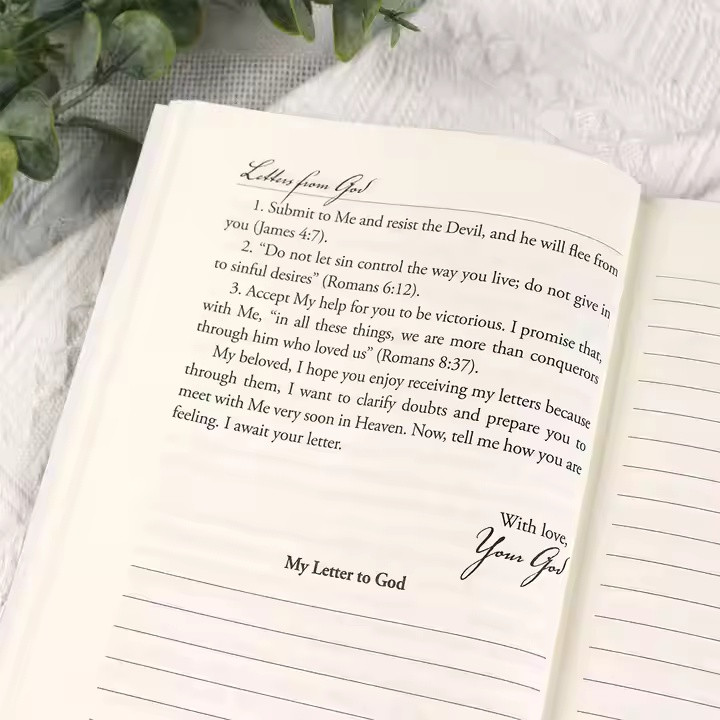 Letters from God
1. Submit to Me and resist the Devil, and he will flee from
you (James 4:7).
2. “Do not let sin control the way you live; do not give in
to sinful desires” (Romans 6:12).
3. Accept My help for you to be victorious. I promise that,
with Me, “in all these things, we are more than conquerors
through him who loved us” (Romans 8:37).
My beloved, I hope you enjoy receiving my letters because
through them, I want to clarify doubts and prepare you to
meet with Me very soon in Heaven. Now, tell me how you are
feeling. I await your letter.
With love,
Your God
My Letter to God